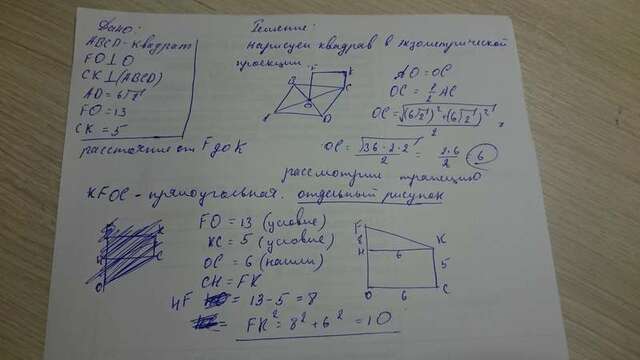 Дано:
ABCD - квадрат
FO⊥O
CK⊥(ABCD)
AD = 6√2
FO = 13
CK = 5
расстояние от F до K
Решение:
нарисуем квадрат в изометрической
проекции
F K
B C
O
A D
AO = OC
OC = 1/2 AC
OC = √((6√2)² + (6√2)²) / 2
OC = √(36·2·2) / 2 = 2·6 / 2 = 6
рассмотрим трапецию
KFOC - прямоугольная. отдельный рисунок
FO = 13 (условие)
KC = 5 (условие)
OC = 6 (нашли)
CH = FK
HF = 13 - 5 = 8
= FK² = 8² + 6² = 10
F
8
H 6 K
5
O 6 C